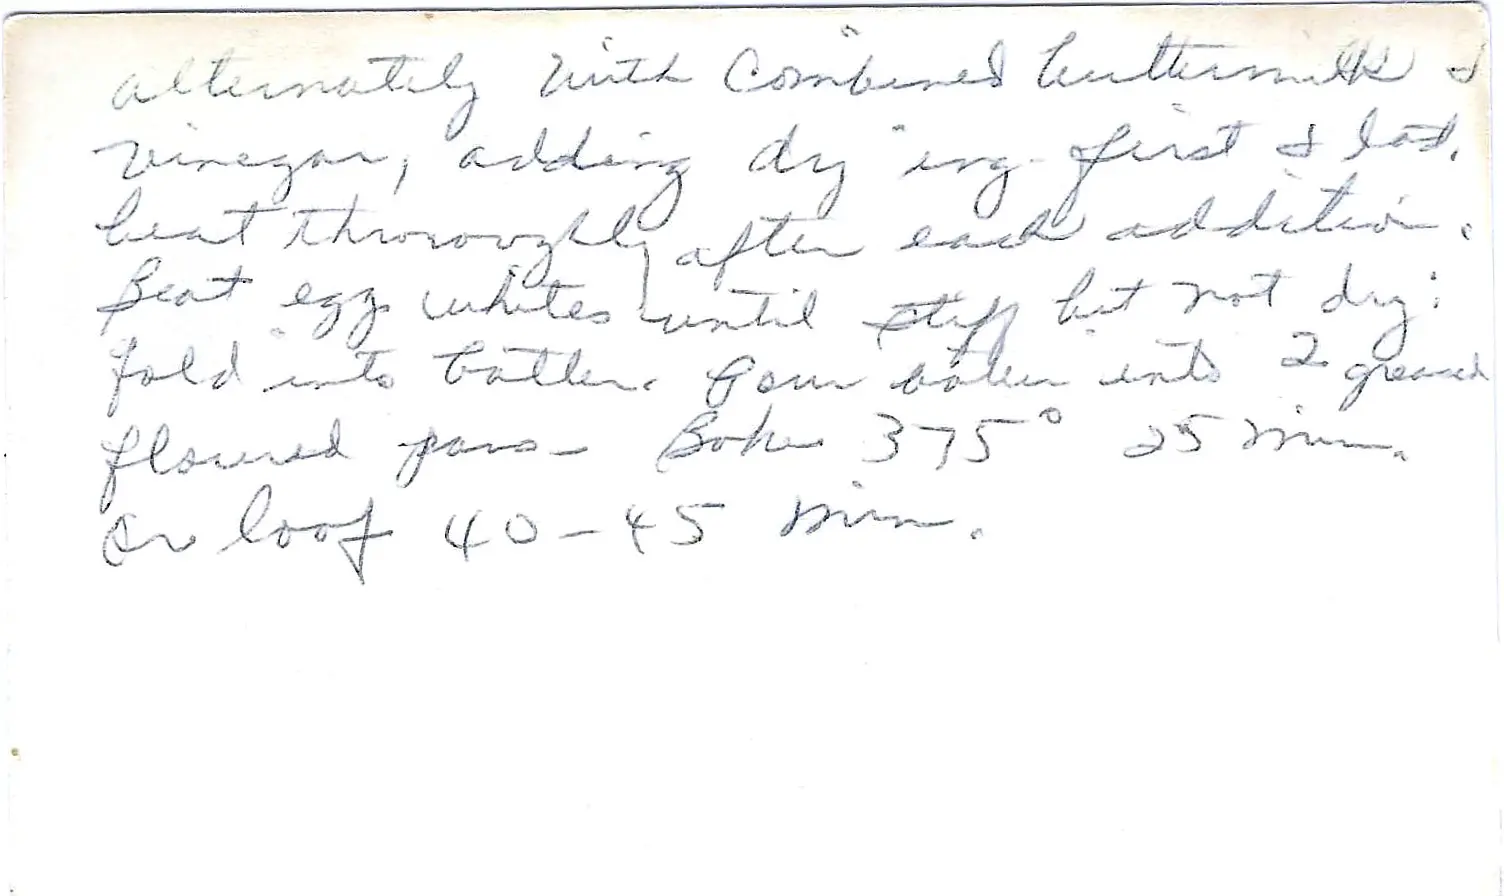 alternately with combined buttermilk &
vinegar, adding dry ing. first & last.
beat thoroughly after each addition.
Beat egg whites until stiff but not dry;
fold into batter. Pour batter into 2 greased
floured pans - Bake 375° 25 min.
or loaf 40-45 min.